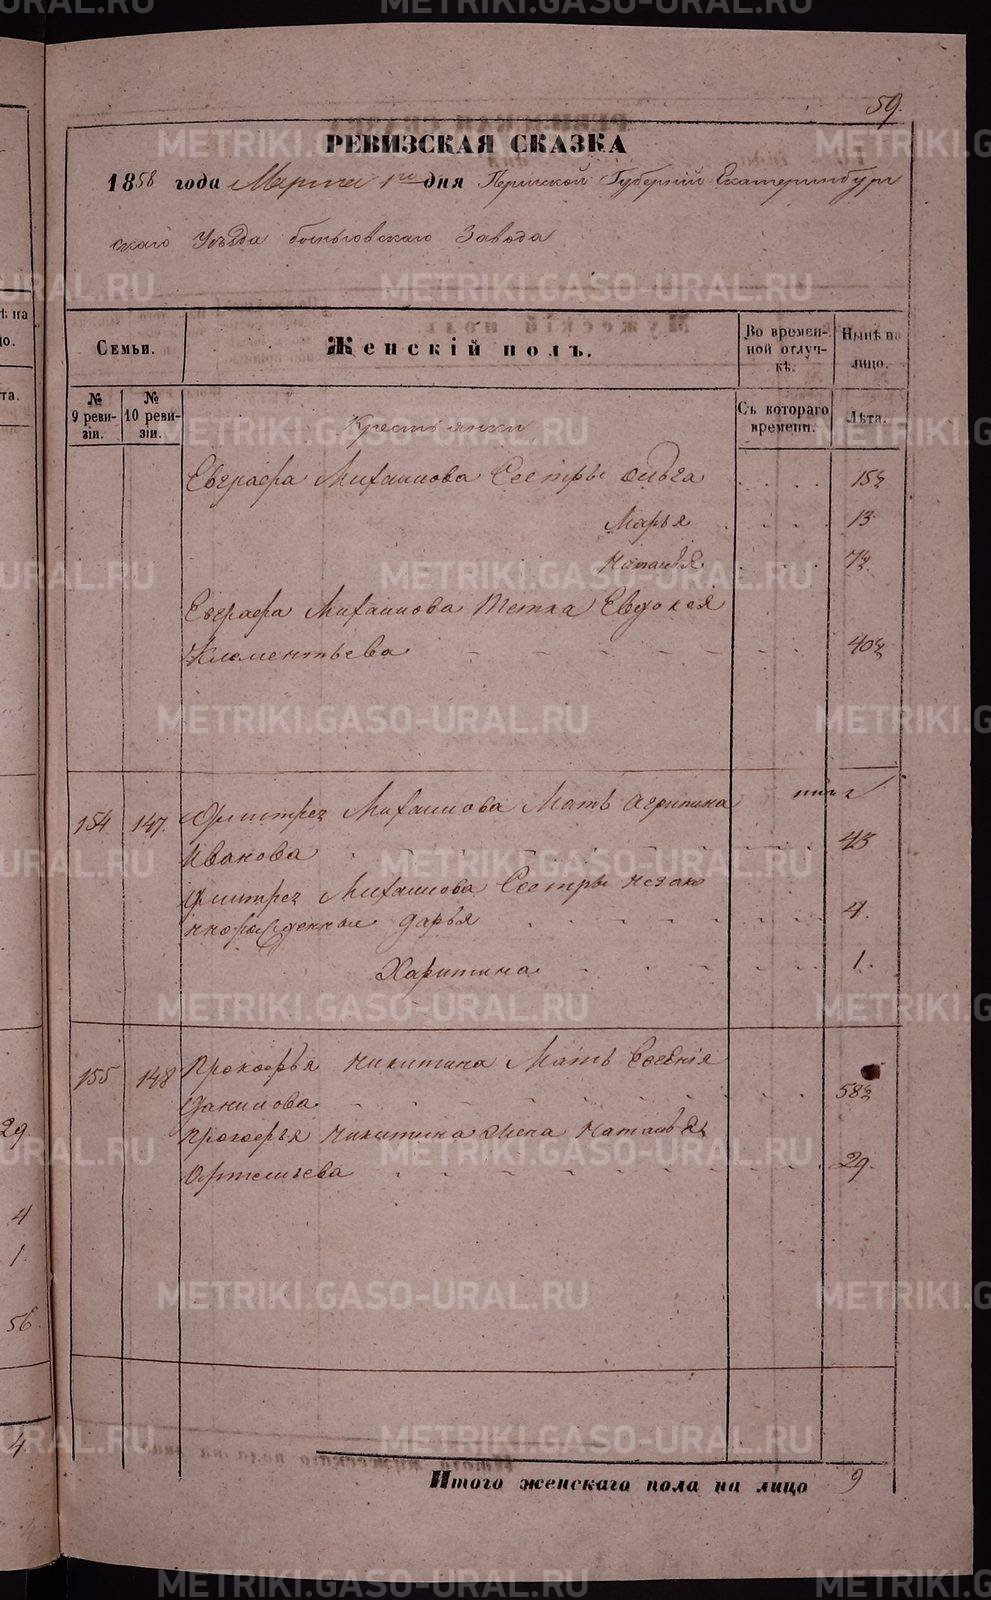 59.
РЕВИЗСКАЯ СКАЗКА
1858 года Марта 1го дня Пермской Губерніи Екатеринбург
скаго Уѣзда Завода
Семьи.
Женскій полъ.
Во времен-
ной отлуч-
кѣ.
Нынѣ на
лицо.
№
9 реви-
зіи.
№
10 реви-
зіи.
Съ котораго
времени.
Лѣта.
Крестьянки
Евграфа Михаилова Сестры Ольга 15½
Марья 13
Наталья 7½
Евграфа Михаилова Тетка Евдокея
Клементьева 40½
154 147. Дмитрея Михаилова Мать Агрипина
Иванова 43
Дмитрея Михаилова Сестры незако
ннорожденныя Дарья 4.
Харитина 1.
155 148 Прокофья Никитина Мать Евгенія
Данилова 58½
Прокофья Никитина жена Наталья
Артемьева 29.
Итого женскаго пола на лицо 9
ѣ на
цо.
та.
29
4
1.
56.
4.
METRIKI.GASO-URAL.RU